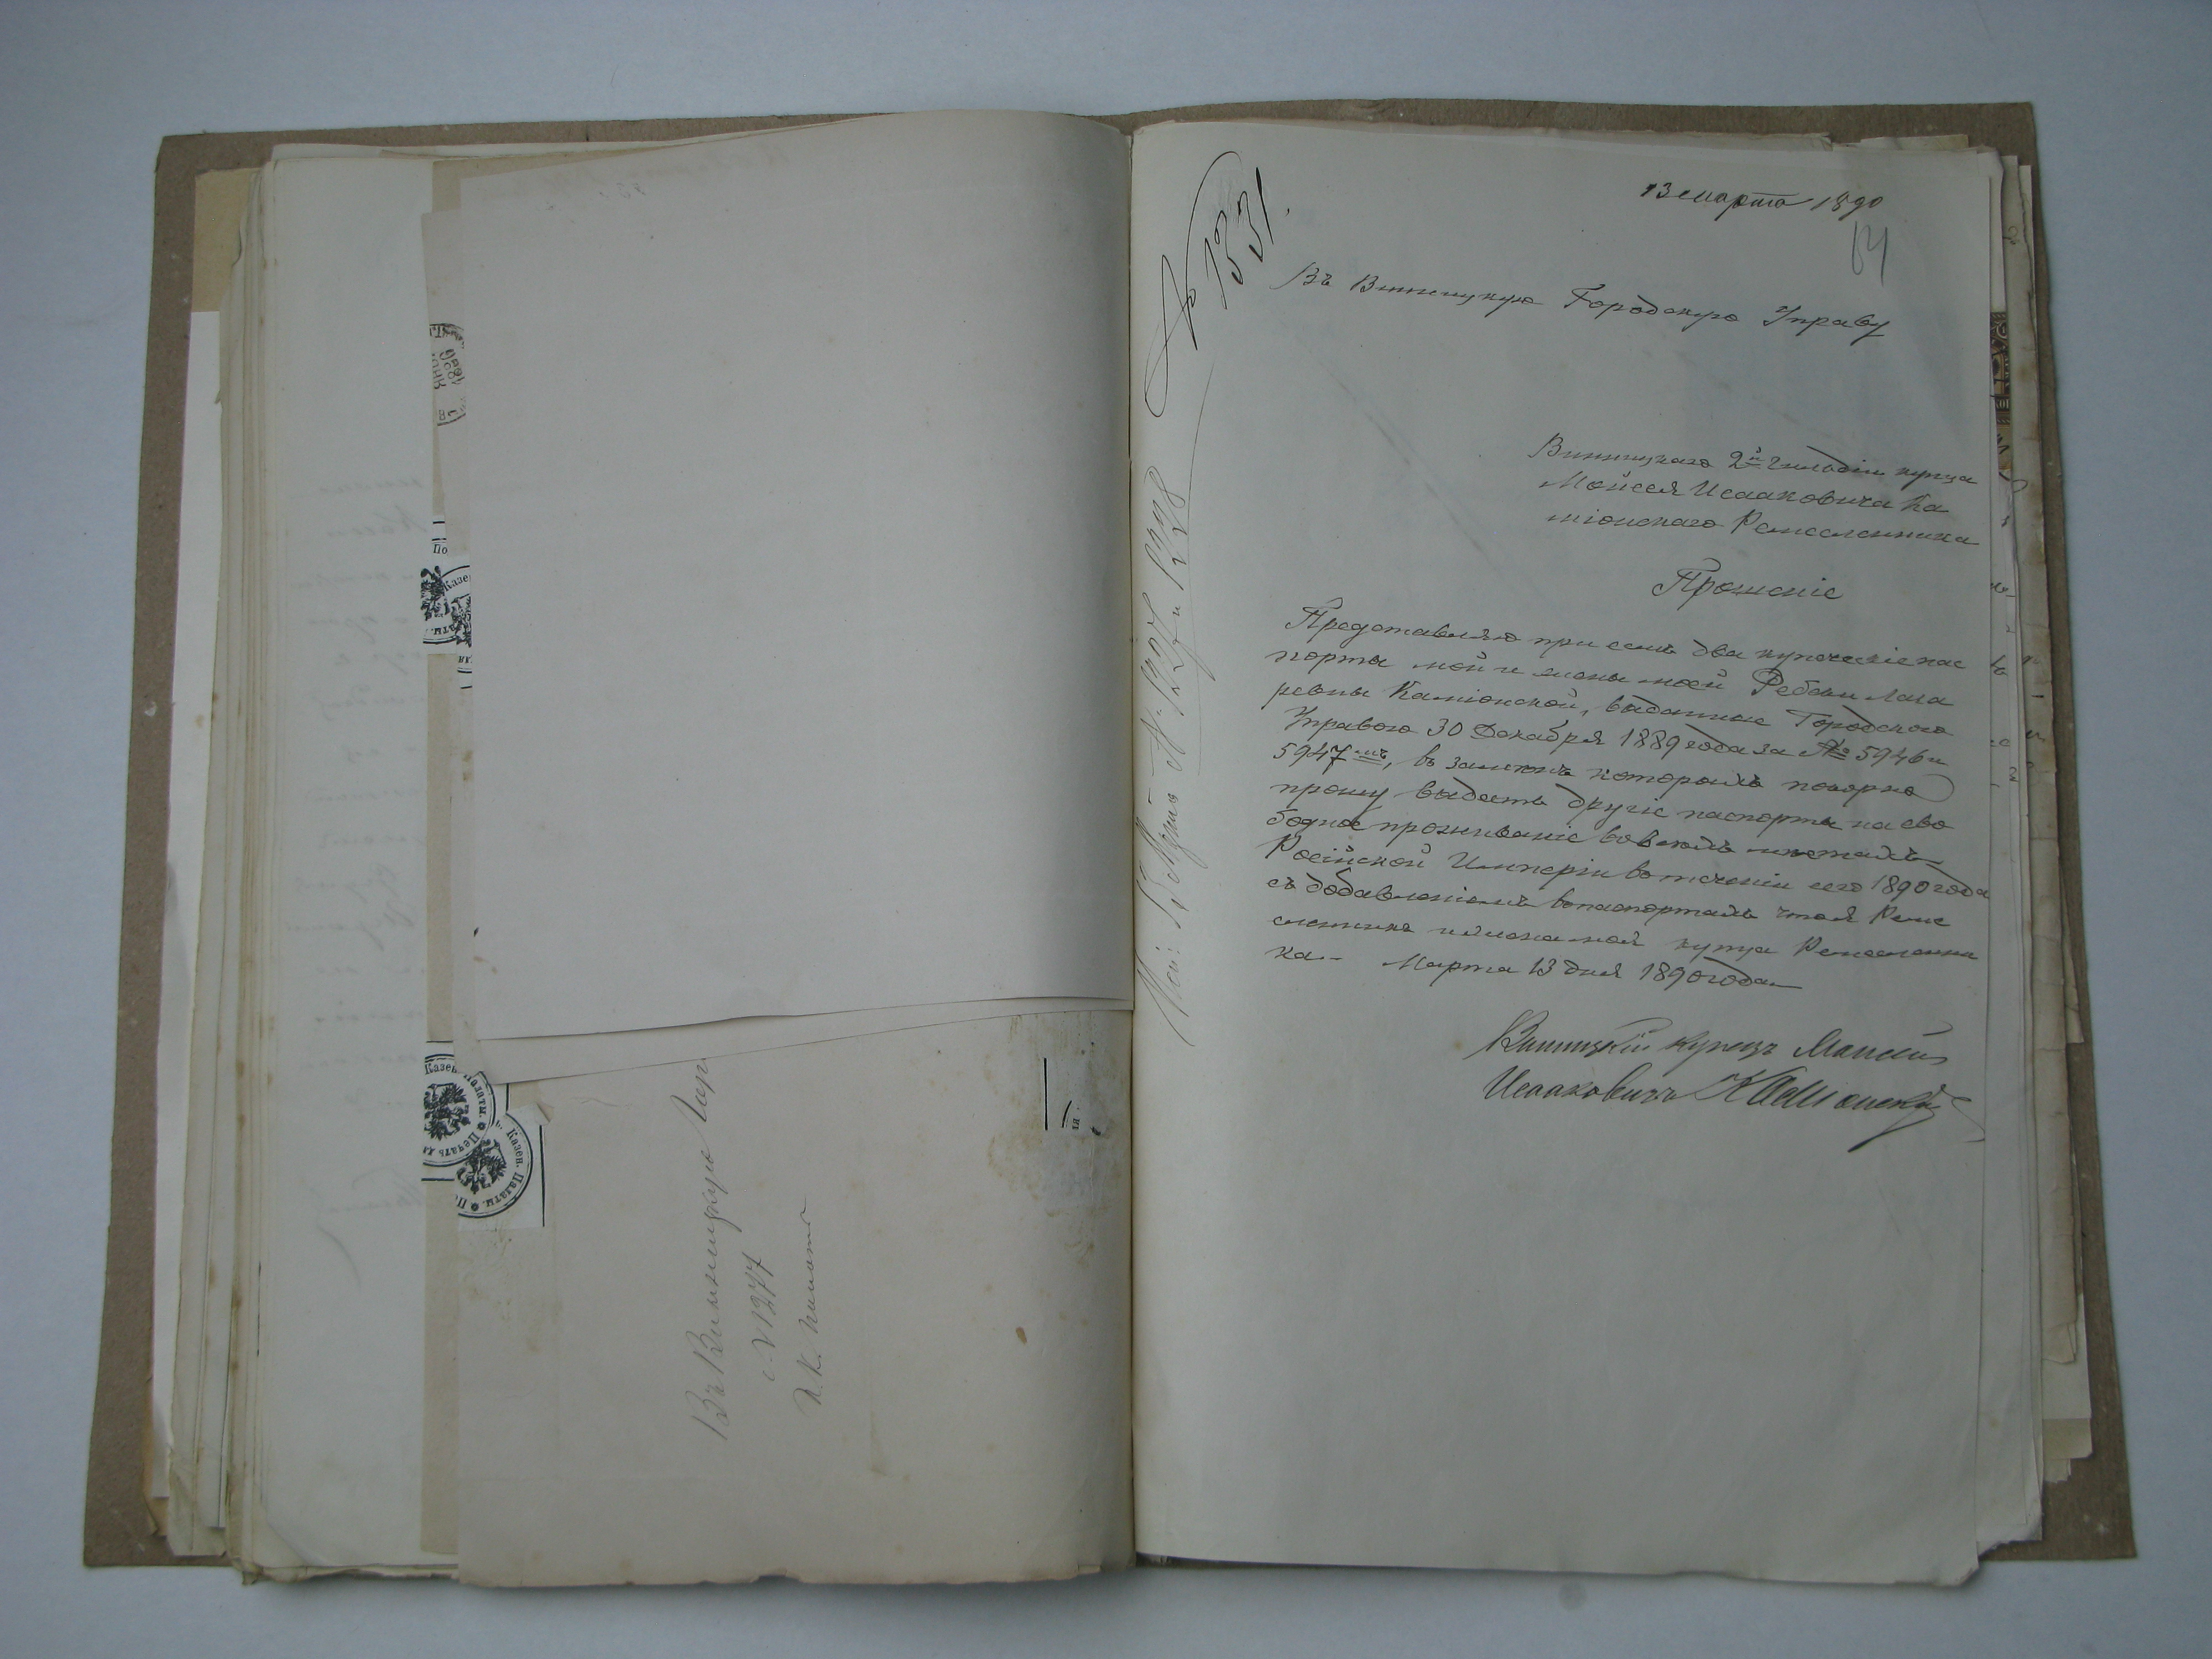 Въ Винницкую
с. № 1277
13 марта 1890
№ 1531.
Въ Винницкую Городскую Управу
Винницкаго 2й Гильдіи купца
Мойсея Исааковича Ка
міонскаго Ремесленника
Прошеніе
Представляю при семъ два купеческіе пас
порта мой и жены моей Ребеки Лаза
ревны Каміонской, выданные Городскою
Управою 30 Декабря 1889 года за № 5946 и
5947мъ, въ замѣнъ которымъ покорно
прошу выдать другіе паспорты на сво
бодное проживаніе во всѣхъ мѣстахъ
Російской Имперіи въ теченіи сего 1890 года
съ добавленіемъ въ паспортахъ что я Реме
сленникъ и жена моя купца Ремесленни
ка- Марта 13 дня 1890 года
Винницкій купецъ Моисей
Исааковичъ Каміонскій